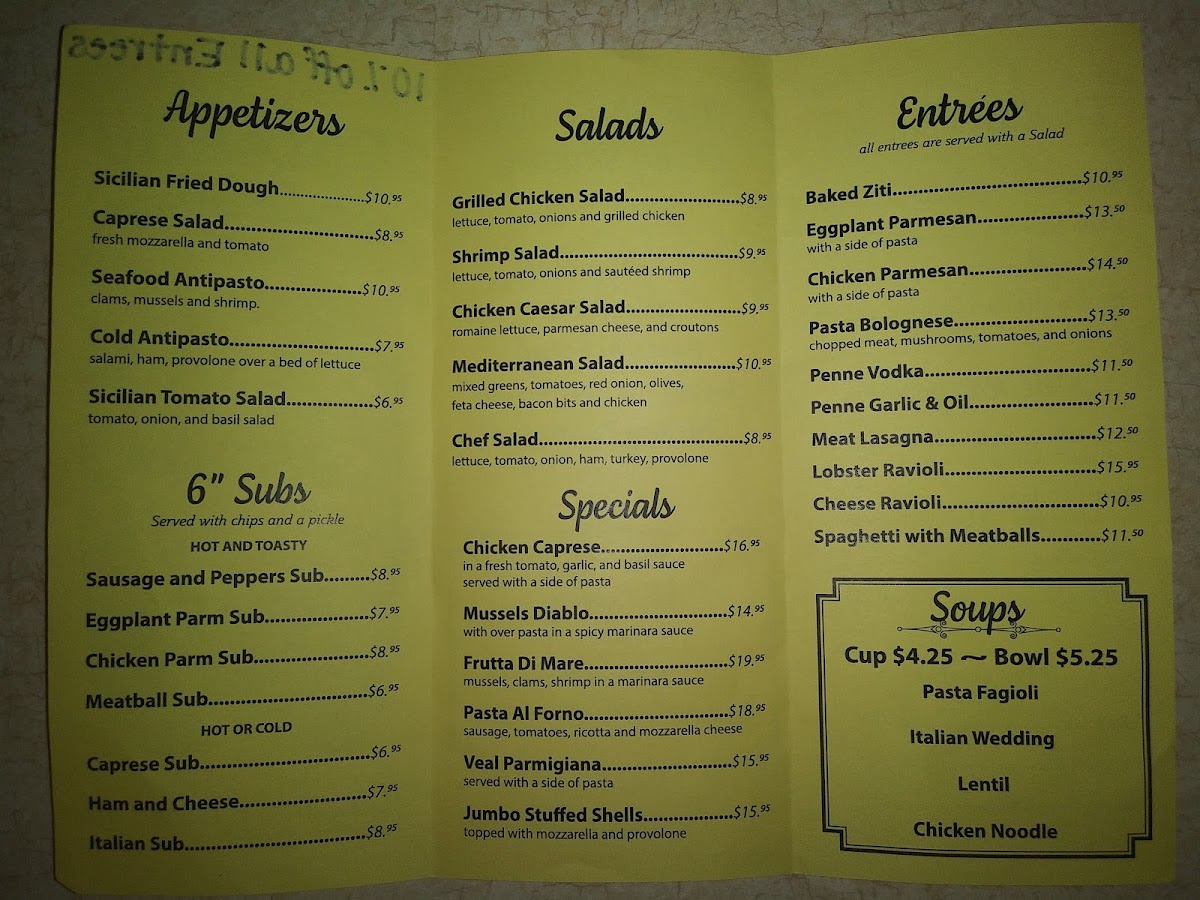 10% off all Entrees
Appetizers
Sicilian Fried Dough.....................$10.95
Caprese Salad...............................$8.95
fresh mozzarella and tomato
Seafood Antipasto....................$10.95
clams, mussels and shrimp.
Cold Antipasto..............................$7.95
salami, ham, provolone over a bed of lettuce
Sicilian Tomato Salad..................$6.95
tomato, onion, and basil salad
6” Subs
Served with chips and a pickle
HOT AND TOASTY
Sausage and Peppers Sub.........$8.95
Eggplant Parm Sub.....................$7.95
Chicken Parm Sub.......................$8.95
Meatball Sub................................$6.95
HOT OR COLD
Caprese Sub.................................$6.95
Ham and Cheese.........................$7.95
Italian Sub....................................$8.95
Salads
Grilled Chicken Salad.......................$8.95
lettuce, tomato, onions and grilled chicken
Shrimp Salad....................................$9.95
lettuce, tomato, onions and sautéed shrimp
Chicken Caesar Salad.......................$9.95
romaine lettuce, parmesan cheese, and croutons
Mediterranean Salad......................$10.95
mixed greens, tomatoes, red onion, olives,
feta cheese, bacon bits and chicken
Chef Salad.........................................$8.95
lettuce, tomato, onion, ham, turkey, provolone
Specials
Chicken Caprese.........................$16.95
in a fresh tomato, garlic, and basil sauce
served with a side of pasta
Mussels Diablo............................$14.95
with over pasta in a spicy marinara sauce
Frutta Di Mare.............................$19.95
mussels, clams, shrimp in a marinara sauce
Pasta Al Forno.............................$18.95
sausage, tomatoes, ricotta and mozzarella cheese
Veal Parmigiana..........................$15.95
served with a side of pasta
Jumbo Stuffed Shells..................$15.95
topped with mozzarella and provolone
Entrées
all entrees are served with a Salad
Baked Ziti......................................$10.95
Eggplant Parmesan.....................$13.50
with a side of pasta
Chicken Parmesan.......................$14.50
with a side of pasta
Pasta Bolognese..........................$13.50
chopped meat, mushrooms, tomatoes, and onions
Penne Vodka.................................$11.50
Penne Garlic & Oil........................$11.50
Meat Lasagna................................$12.50
Lobster Ravioli.............................$15.95
Cheese Ravioli..............................$10.95
Spaghetti with Meatballs...........$11.50
Soups
Cup $4.25 ~ Bowl $5.25
Pasta Fagioli
Italian Wedding
Lentil
Chicken Noodle